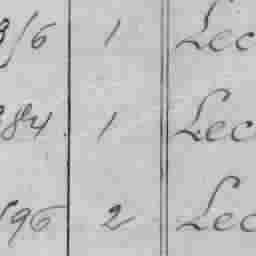 1 Lec
84 1 Lec
96 2 Lec